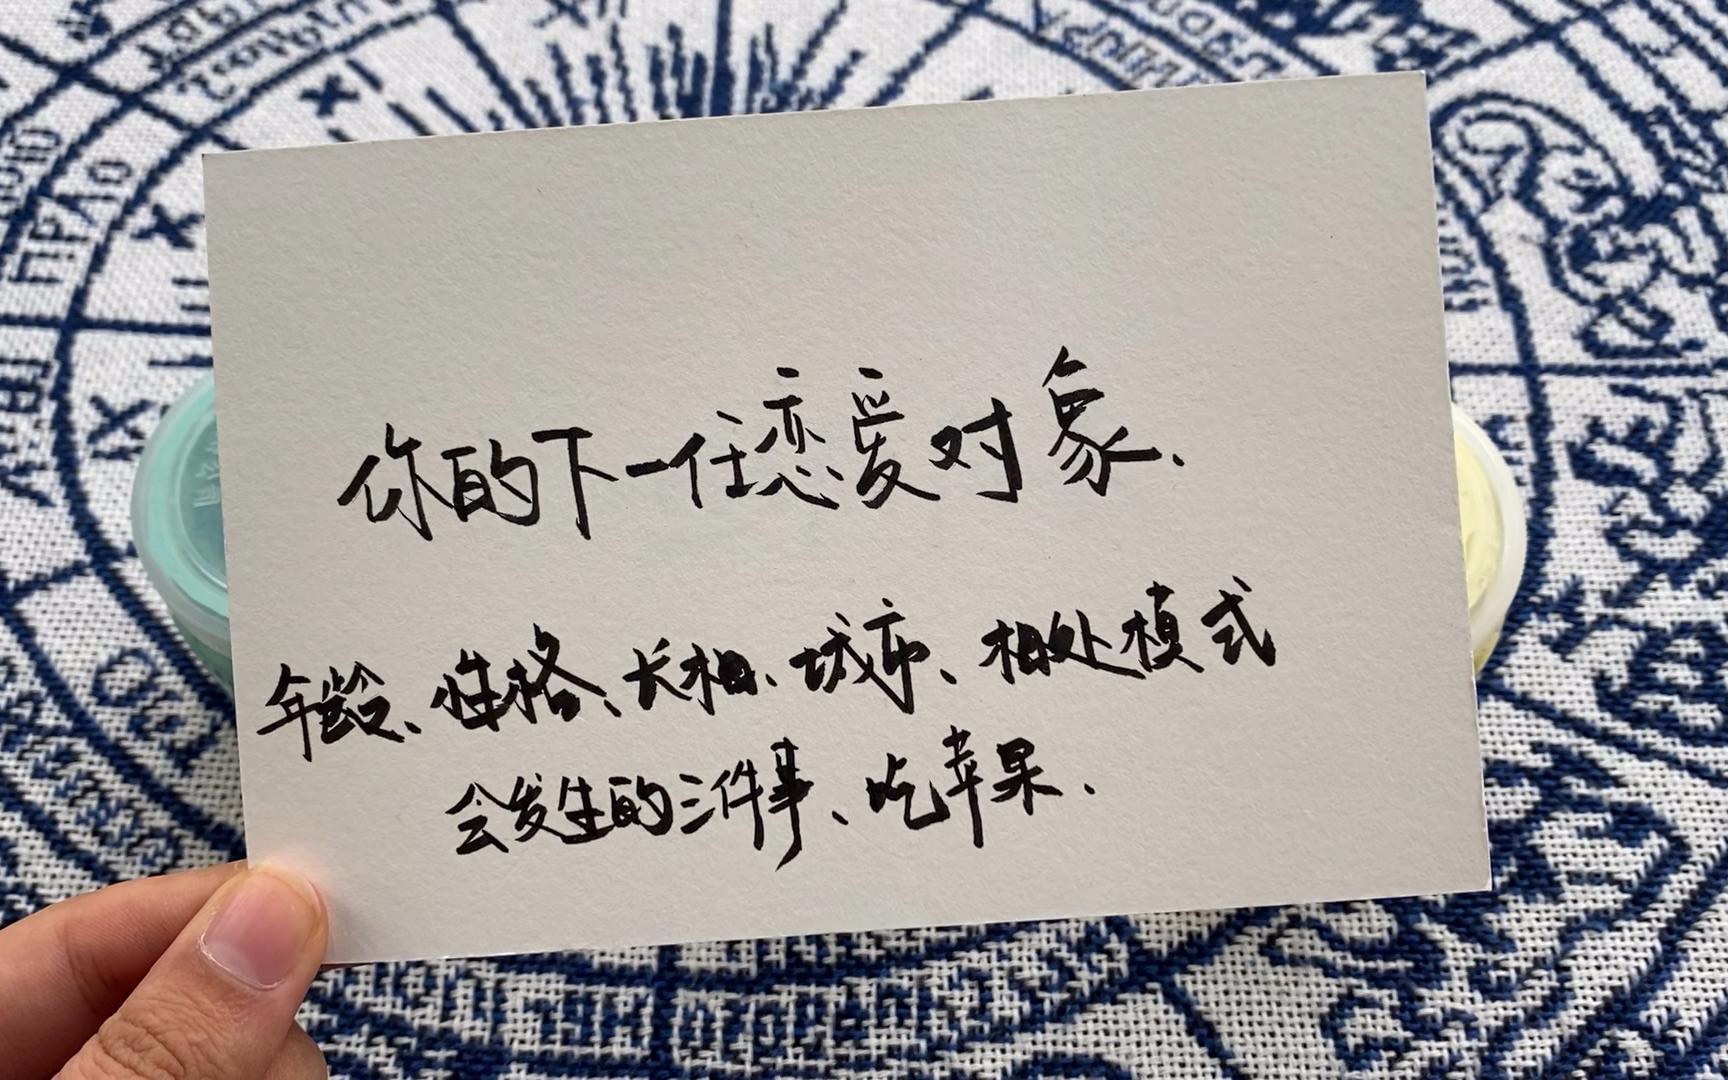 你的下一任恋爱对象.
年龄、性格、长相、城市、相处模式
会发生的三件事、吃苹果.